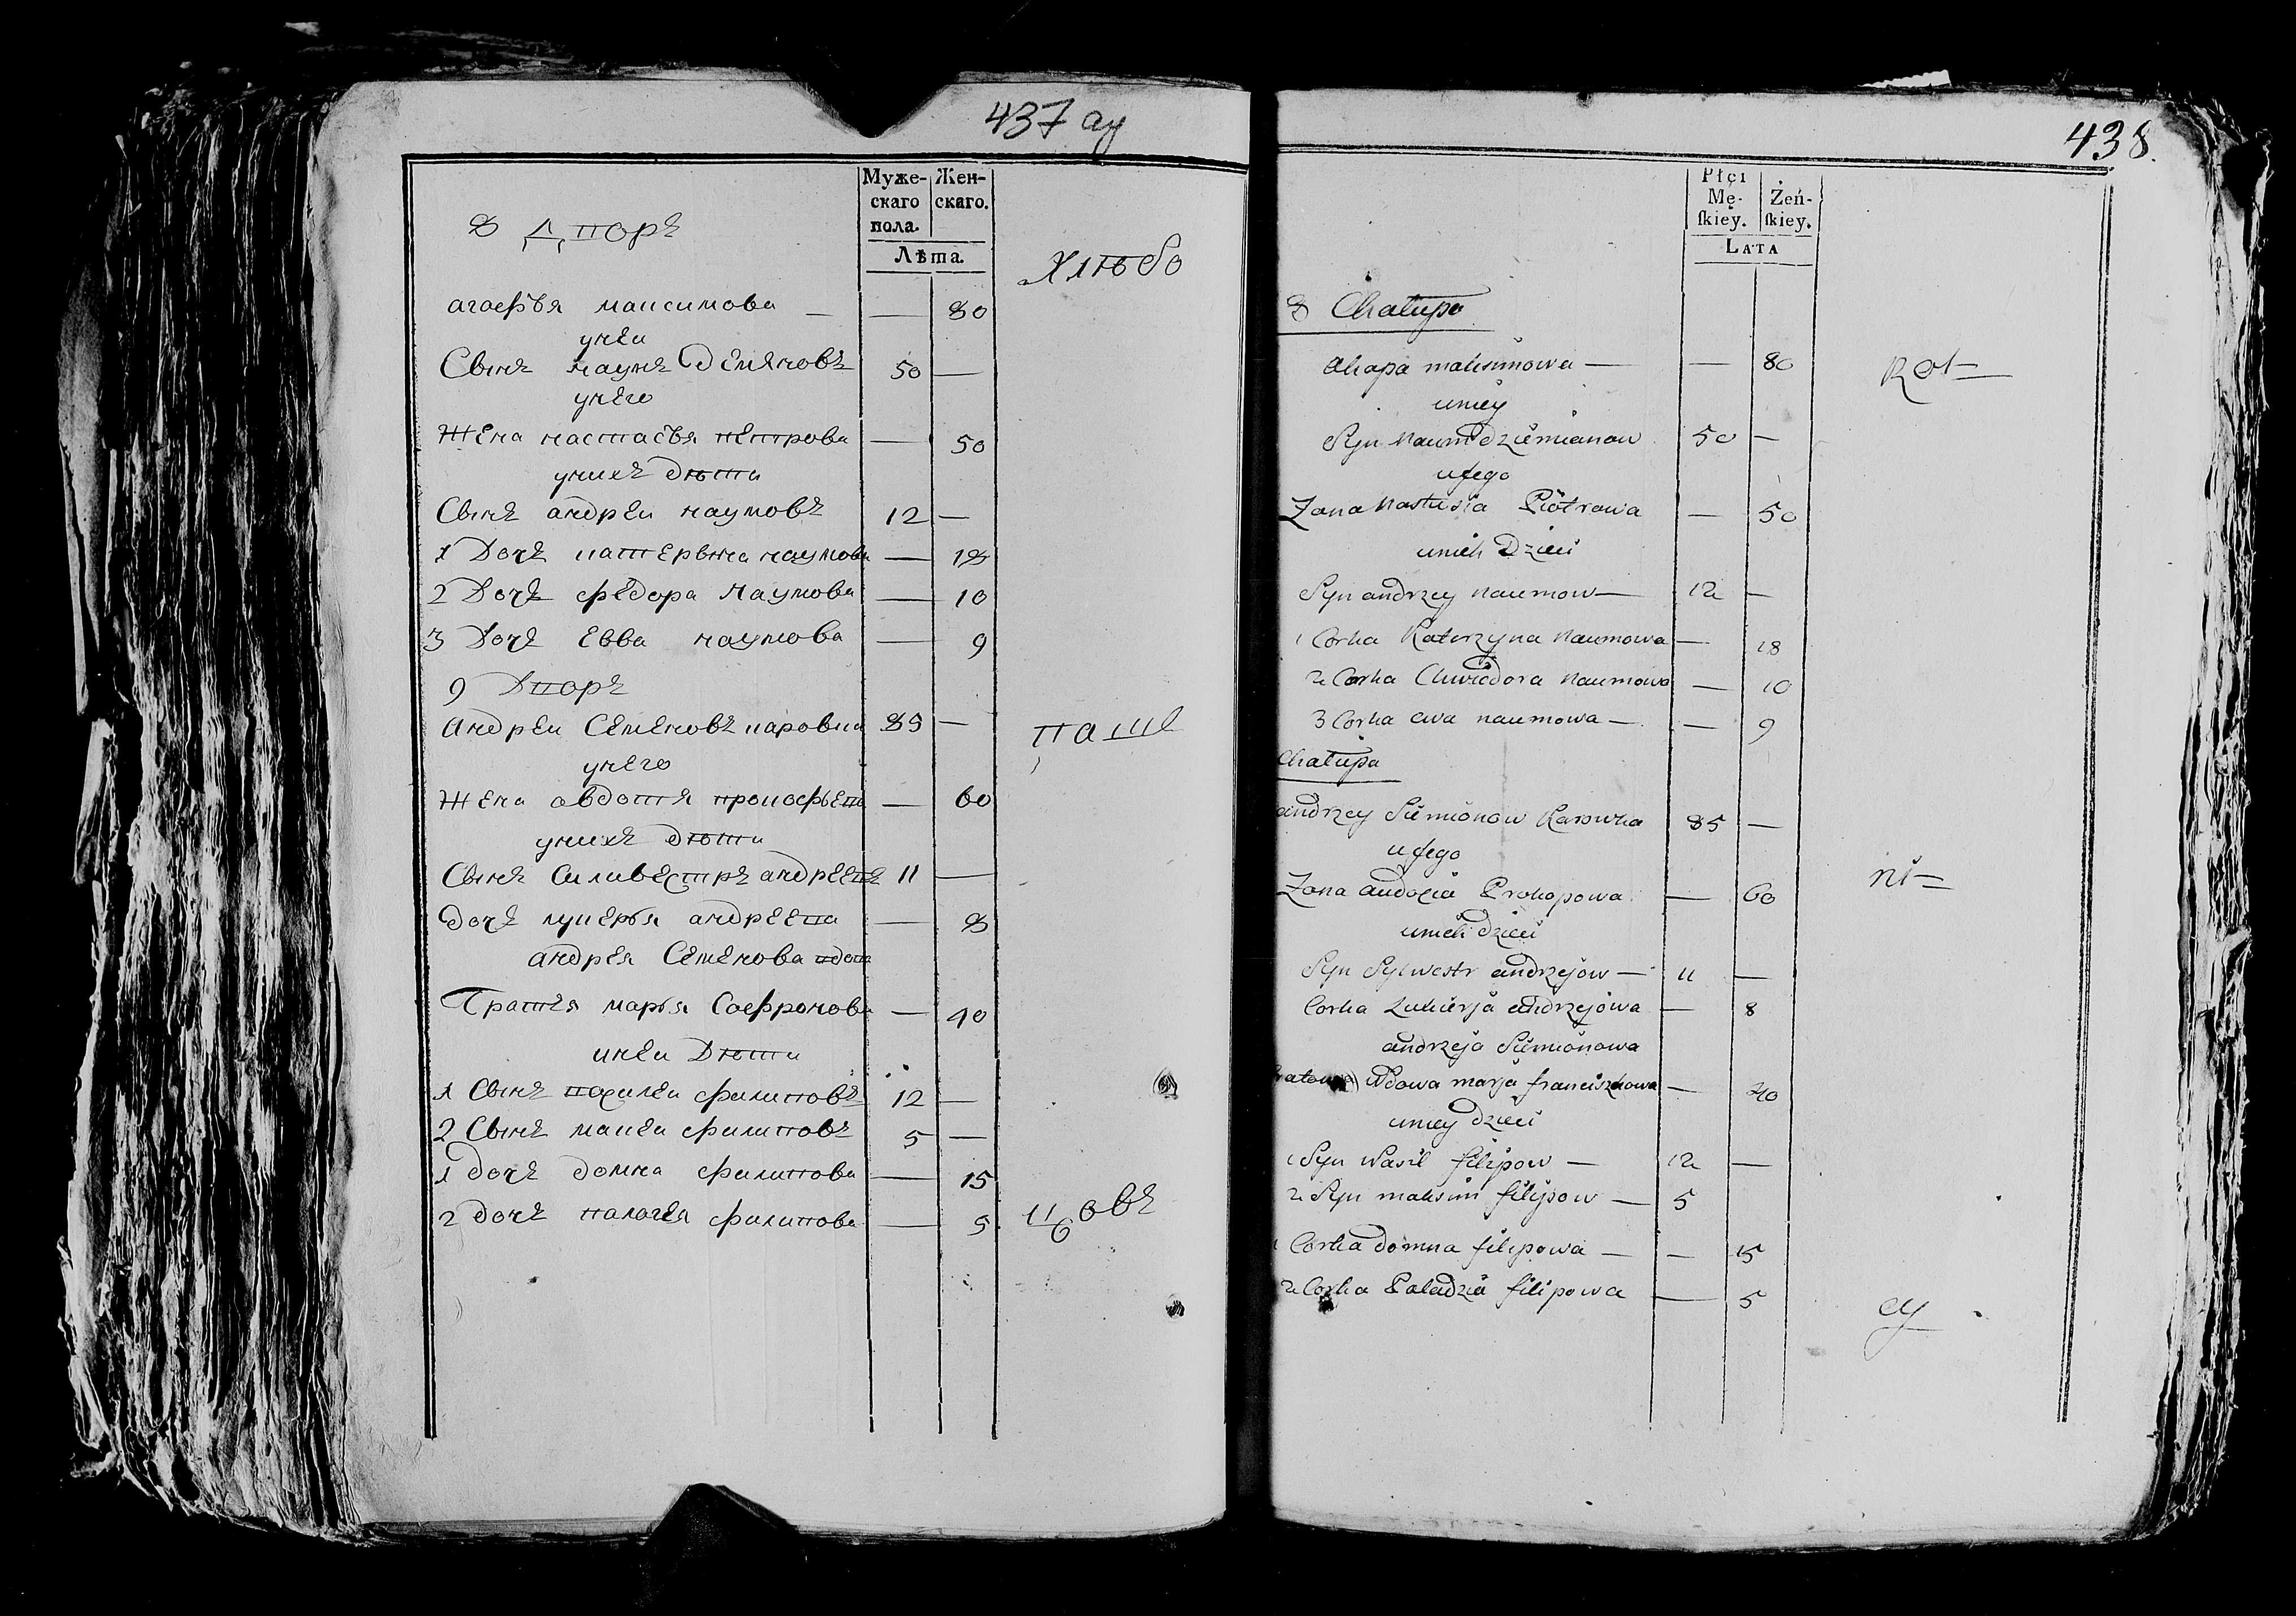 437 ау
Муже-
скаго
пола.
Жен-
скаго.
Лѣта.
8 Дворъ
Хлѣбо
агаефья максимова — — 80
унеи
Сынъ наумъ Демяновъ 50 —
унего
Жена настасья петрова — 50
унихъ дѣти
Сынъ андреи наумовъ 12 —
1 Дочъ катерына наумова — 18
2 Дочъ федора наумова — 10
3 Дочъ Евва наумова — 9
9 Дворъ
Андреи Семеновъ 85 —
паше
унего
Жена авдотя — 60
унихъ дѣти
Сынъ Силивестръ андреевъ 11 —
дочъ лукерья андреева — 8
андрея Семенова
Братья марья Соефронова — 40
унеи Дѣти
1 Сынъ василеи филиповъ 12 —
2 Сынъ филиповъ 5 —
1 дочъ домна филипова — 15
2 дочъ палагея филипова — 5
цовъ
438.
Płci
Mę-
ſkiey.
Żeń-
ſkiey.
LATA
8 Chałupa
Ahapa maksimowa — — 80
Rol=
uniey
Syn Naum dziemianow 50 —
uſego
Zona Nastusia Piotrowa — 50
unich Dzieci
Syn andrzey naumow — 12 —
1 Corka Katerzyna Naumowa — 18
2 Corka Chwiodora Naumowa — 10
3 Corka ewa naumowa — — 9
Chałupa
andrzey Siemionow 85 —
uſego
ni=
Zona audocia Prokopowa — 60
unich dzieci
Syn Sylwestr andrzejow — 11 —
Corka Lukierja andrzejowa — 8
andrzeja Siemionowa
Wdowa marja franciszkowa — 40
uniey dzieci
1 Syn Wasil filipow — 12 —
2 Syn maksim filipow — 5
1 Corka domna filipowa — — 15
2 Corka Paladzia filipowa — 5
cy